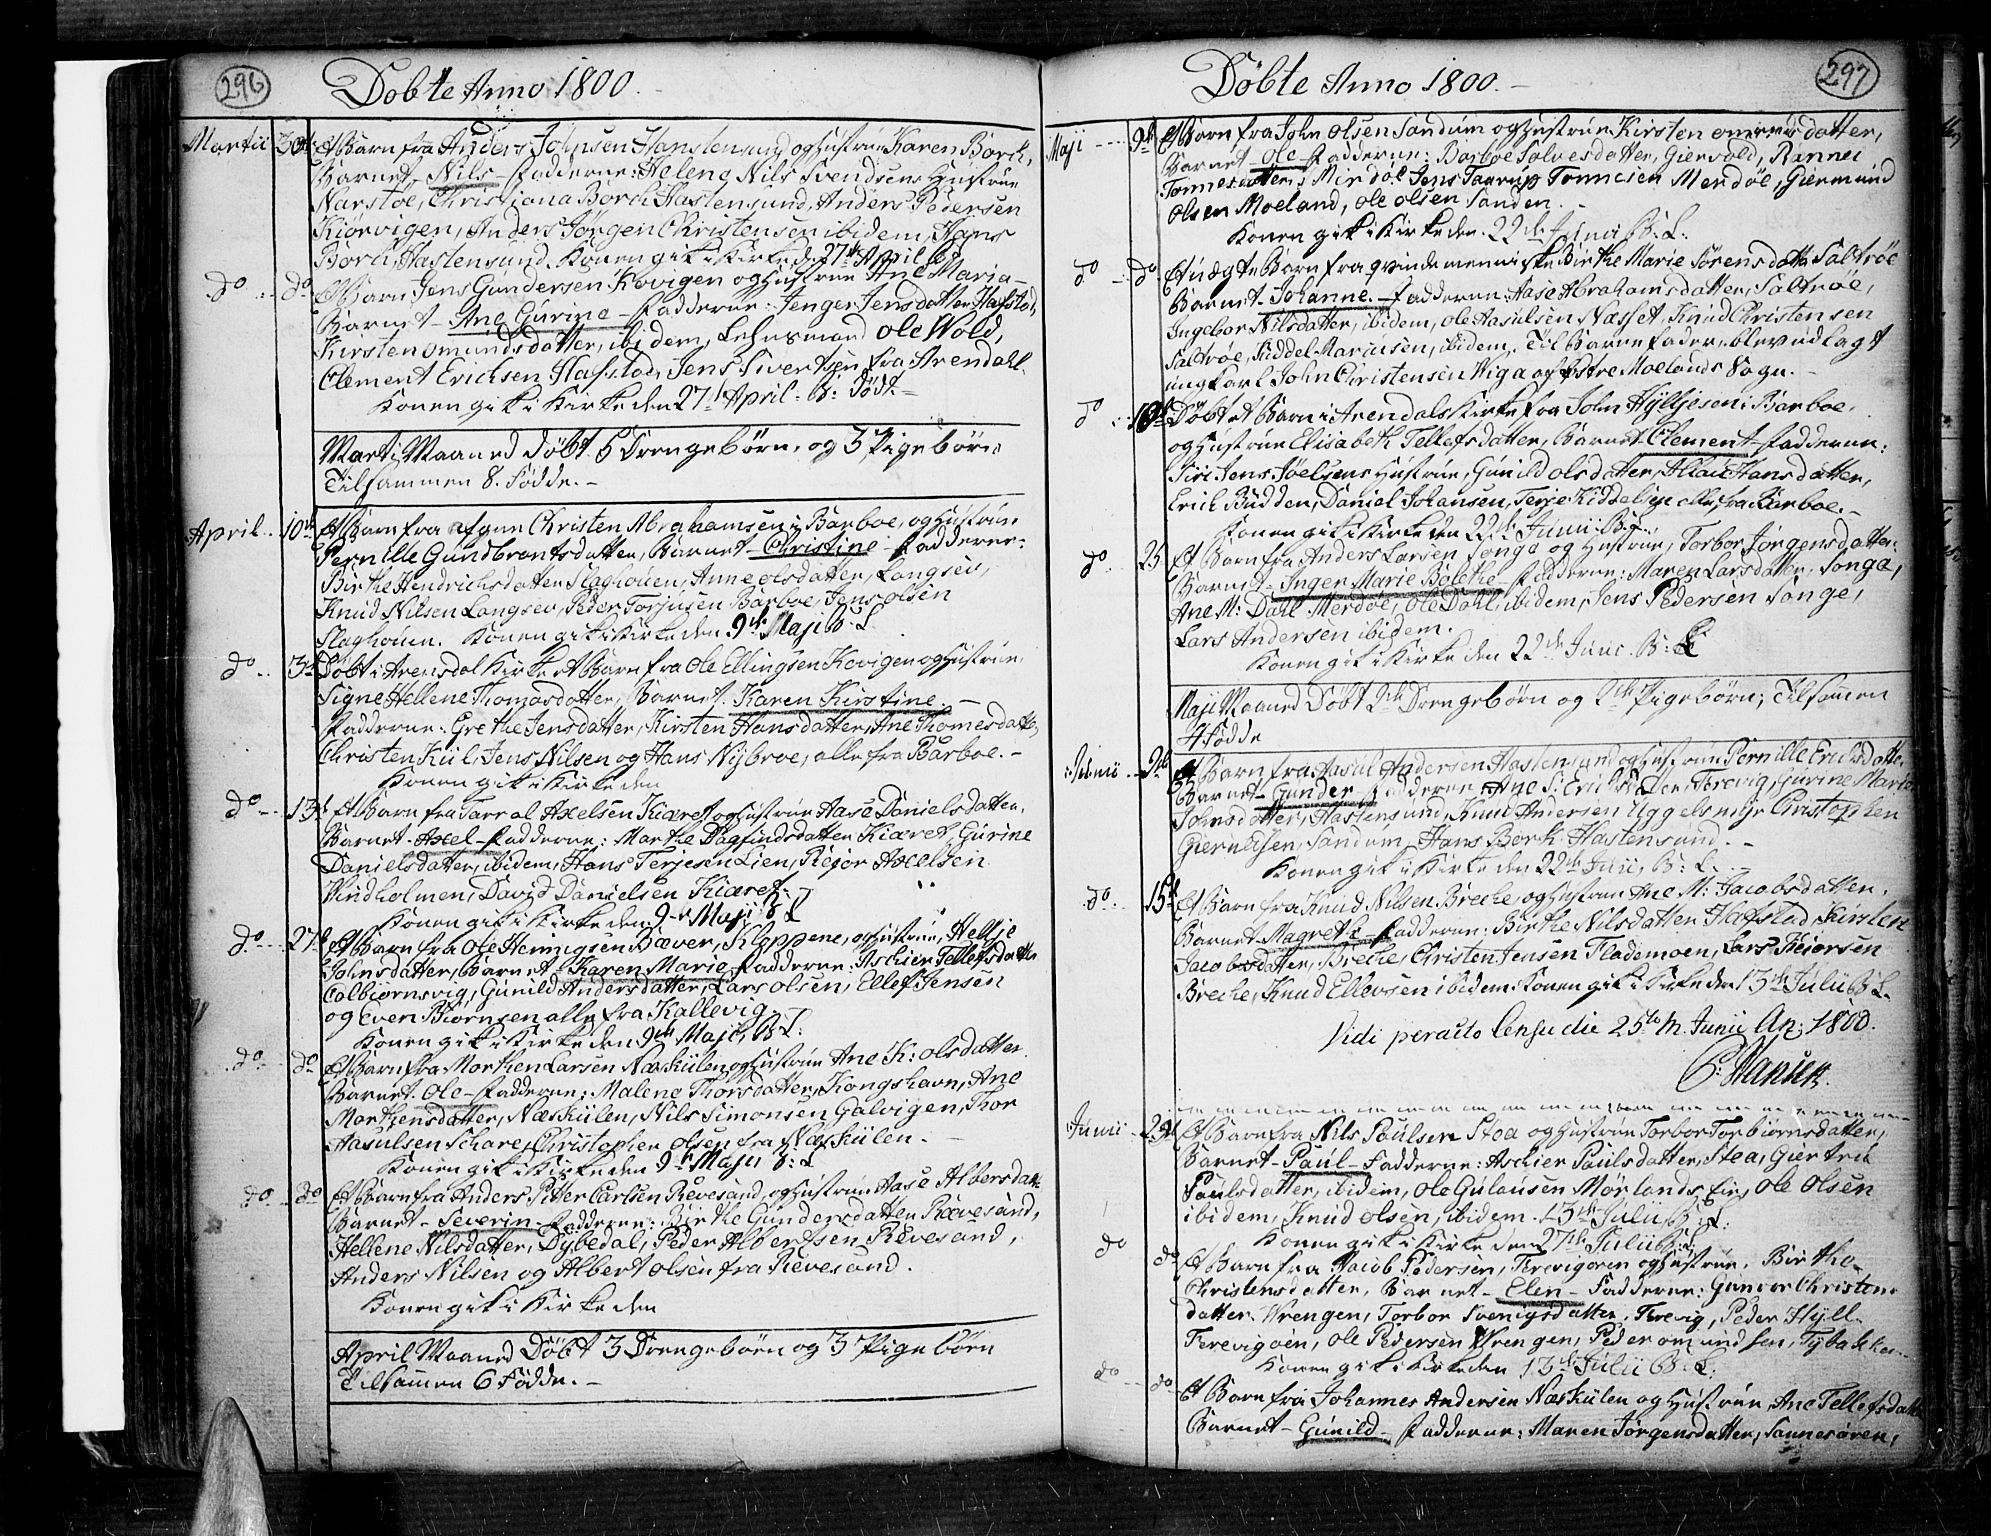 296
Döbte Anno 1800.
Martii 30te Et Barn fra Anders Johnsen Hastensund og Hustrue Karen Bork,
Barnet Nils Fadderne: Helene Nils Svendsens Hustrue
Narstöe, Christiana Bork Hastensund, Anders Pedersen
Kiörvigen, Anders Jörgen Christensen ibidem, Hans
Bork, Hastensund. Konen gik i Kirke den 27de April
do do Et Barn Jens Gundersen Kovigen og Hustrue Ane Maria
Barnet - Ane Gurine - Fadderne: Jenger Jensdatter Hafstad,
Kirsten Omundsdatter, ibidem, Lehnsmand Ole Wold,
Clement Erichsen Hafstad, Jens Sivertsen fra Arendahl.
Konen gik i Kirke den 27de April
Marti Maaned Döbt 5 Drengebörn, og 3 Pigebörn
Tilsammen 8. Födde.
April 10de Et Barn fra Christen Abrahamsen i Barboe, og Hustrue
Pernille Gundbrantsdatter, Barnet - Christine - Fadderne:
Birthe Hendrichsdatter Slaghouen, Anne Olsdatter, Langsev,
Knud Nilsen Langsev, Peder Torjusen Barboe, Jens Olsen
Slaghouen. Konen gik i Kirke den 9de Maji B. L.
do 3d Döbt i Arendal Kirke Et Barn fra Ole Ellingsen Kovigen og Hustrue
Signe Hellene Thomasdatter, Barnet. Karen Kirstine
Fadderne: Grethe Jensdatter, Kirsten Hansdatter, Ane Thomesdatte,
Christen Kiil, Jens Nilsen og Hans Nybroe, alle fra Barboe.
Konen gik i Kirke den
do 13d Et Barn fra Tarral Axelsen Kiæret og Hustrue Aase Danielsdatter,
Barnet - Axel - Fadderne: Marthe Dagfindsdatter Kiæret, Gurine
Danielsdatter, ibidem, Hans Terjesen Lien, Reior Axelsen
Vindholmen, David Danielsen Kiæret.
Konen gik i Kirke den 9de Maji B L
do 27d Et Barn fra Ole Henrigsen Bæver, Kloppene, og Hustrue, Heltje
Johnsdatter, Barnet - Karen Marie Fadderne: Aschier Tellefsdatter
Colbiornsvig, Gunild Andersdatter, Lars Olsen, Ellef Jensen
og Even Biörnsen alle fra Kallevig.
Konen gik i Kirke den 9de Maji, B L:
do do Et Barn fra Morthen Larsen Næskilen og Hustrue Ane K: Olsdatter.
Barnet. Ole - Fadderne: Malene Thorsdatter, Kongshavn, Ane
Morthensdatter, Næskilen, Nils Simonsen Galvigen, Thor
Aasulsen Schare, Christopher Olsen fra Næskilen.
Konen gik i Kirke den 9de Maji B: L
do do Et Barn fra Anders Pitter Carlsen Revesand, og Hustrue Aase Albersdatt
Barnet - Severin - Fadderne: Birthe Gundersdatter Rævesand,
Hellene Nilsdatter, Dybedal, Peder Albertsen Revesand,
Anders Nilsen og Albert Olsen fra Revesand.
Konen gik i Kirke den
April Maaned Döbt 3 Drengebörn og 3 Pigebörn
Tilsamen 6 Födde.
297
Döbte Anno 1800.
Maji 9de Et Barn fra John Olsen Sandum og Hustrue Kirsten datter,
Barnet - Ole - Fadderne: Barboe Salvesdatter, Giervold, Rannei
Tonnesdatter, Mirdöe Jens Taarup Tonnesen Merdöe, Giermund
Olsen Moeland, Ole Olsen Sanden.
Konen gik i Kirke den 22de Juni B. L.
do do Et uægte Barn fra qvindemenniske Birthe Marie Sörensdatter Saltröe
Barnet - Johanne. - Fadderne: Aase Abrahamsdatter, Saltröe,
Ingebor Nilsdatter, ibidem, Ole Aasulsen Næsset, Knud Christensen
Saltröe, Siddel Marcusen, ibidem. Til Barnefader blev udlagt
ungkarl John Christensen Viga af Östre Moelands Sogn.
do 10de Döbt et Barn i Arendals Kirke fra John Hylljesen i Barboe,
og Hustrue Elisabeth Tellefsdatter, Barnet Clement - Fadderne:
Siri Jens Jöelsens Hustrue, Gunild Olsdatter, Hansdatter,
Erich Budden, Daniel Johansen, Terje Kiddelsen alle fra Barboe.
Konen gik i Kirke den 22de Juni B. L.
do 25 Et Barn fra Anders Larsen Songe og Hustrue, Torbor Jörgensdatter
Barnet - Inger Marie Bolethe - Fadderne: Maren Larsdatter, Songe,
Ane M: Dahl Merdöe, Ole Dahl, ibidem, Jens Pedersen Songe,
Lars Andersen ibidem.
Konen gik i Kirke den 22de Juni. B: L
Maji Maaned Döbt 2de Drengebörn og 2de Pigebörn; Tilsamen
4 Födde
Junii 2d Et Barn fra Aasul Andersen Hastensund og Hustrue Pernille Erichsdatter
Barnet - Gunder - Fadderne Ane S: Erichsdatter, Terevig, Gurine Marie
Johnsdatter, Hastensund, Knud Andersen Uggelsmyr Christopher
Giernulsen, Sandum, Hans Bork Hastensund.
Konen gik i Kirke den 22de Juni, B: L.
do. 15d Et Barn fra Knud Nilsen Breche, og Hustrue Ane M: Jacobsdatter.
Barnet Magrete - Fadderne: Birthe Nilsdatter Hafstad Kirsten
Jacobsdatter, Breche, Christen Jensen Flademoen, Lars Reiorsen
Breche, Knud Ellevsen ibidem. Konen gik i Kirke den 13de Julii B L.
Vidi peracto Censu die 25to M. Junii An: 1800.
P. Hansen.
Junii 29d Et Barn fra Nils Poulsen Stoa og Hustrue Torbor Torbiornsdatter,
Barnet - Paul - Fadderne: Aschier Paulsdatter, Stoa, Giertrue
Paulsdatter, ibidem, Ole Gulausen Mørlands Eie, Ole Olsen
ibidem, Knud Olsen, ibidem. 13de Julii, B. L:
Konen gik i Kirke den 27de Julii B L
do do Et Barn fra Jacob Pedersen, Terevigoren og Hustrue, Birthe
Christensdatter, Barnet - Elen - Fadderne: Gunvor Christens
datter Wrengen, Torbor Svenigsdatter, Terevig, Peder Hyll
Terevigoen, Ole Pedersen Wrengen, Peder Omundsen, Tybakken
Konen gik i Kirke den 13de Julii B: L:
do do Et Barn fra Johannes Andersen Næskilen og Hustrue, Ane Tellefsdatt
Barnet - Gunild - Fadderne: Maren Jörgensdatter, Sannesören,